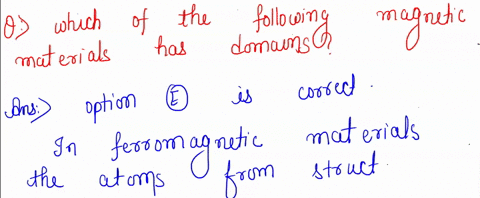 Q:> which of the following magnetic
materials has domains?
Ans:> option Ⓔ is correct.
In ferromagnetic materials
the atoms from struct